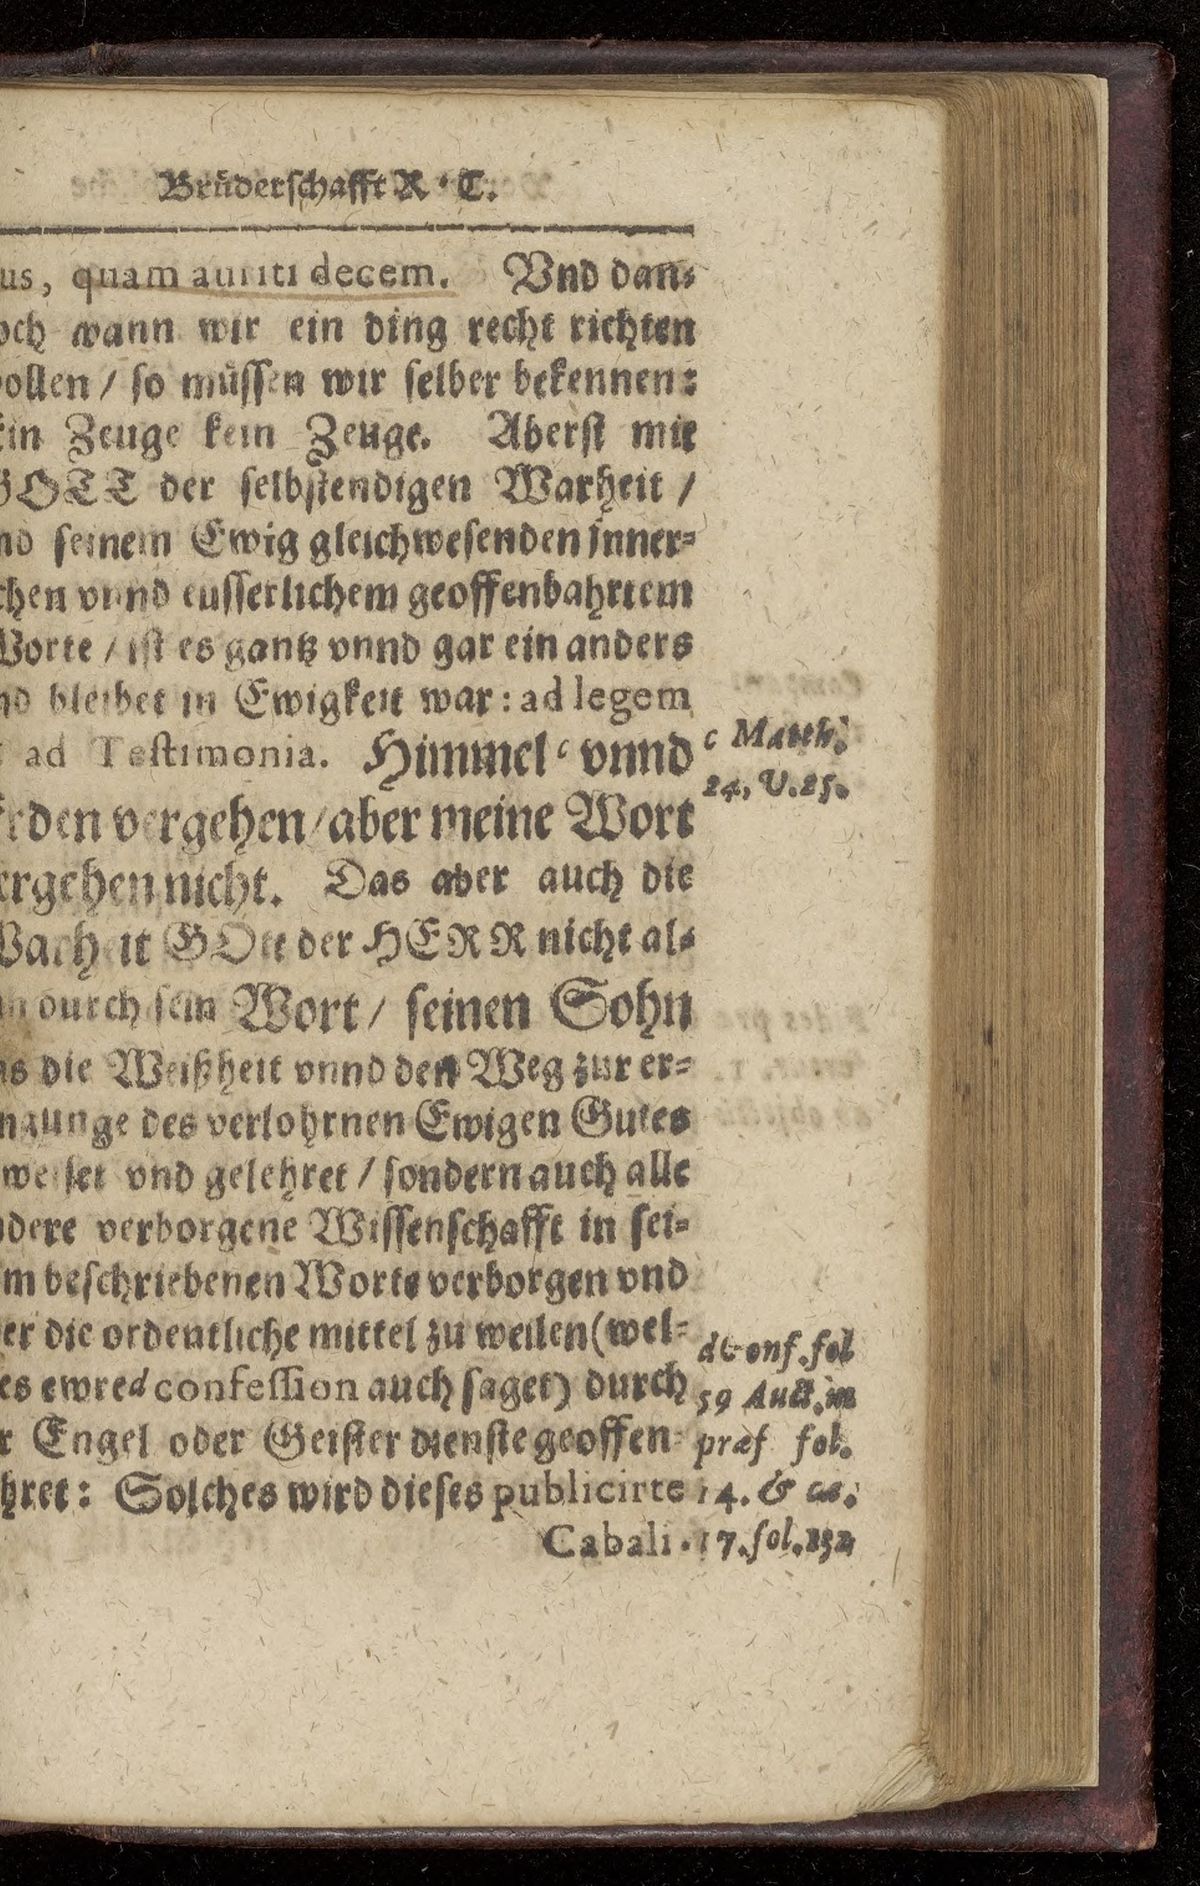 Brüderschafft R. C.
us, quam auriti decem. Vnd dan-
och wann wir ein ding recht richten
ollen / so müssen wir selber bekennen:
ein Zeuge kein Zeuge. Aberst mit
GOTT der selbstendigen Warheit /
nd seinem Ewig gleichwesenden inner-
chen vnnd eusserlichem geoffenbahrtem
Worte / ist es gantz vnnd gar ein anders
nd bleibet in Ewigkeit war: ad legem
ad Testimonia. Himmel c vnnd
Erden vergehen / aber meine Wort
ergehen nicht. Das aber auch die
Warheit GOtt der HERR nicht al-
in durch sein Wort / seinen Sohn
as die Weißheit vnnd den Weg zur er-
ngunge des verlohrnen Ewigen Gutes
weiset vnd gelehret / sondern auch alle
ndere verborgene Wissenschafft in sei-
m beschriebenen Worte verborgen vnd
er die ordentliche mittel zu weilen (wel-
es ewre d confession auch saget) durch
r Engel oder Geister dienste geoffen-
hret: Solches wird dieses publicirte
Cabali-
c Matth.
24, V. 25.
d Conf. fol
59 Auct. in
præf fol.
14. & ca.
17. fol. 252